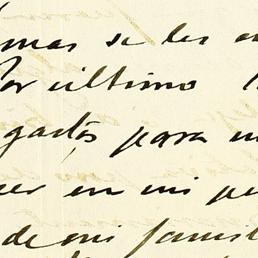 mas se les
Por ultimo
gastos para
en mi
de mi famil